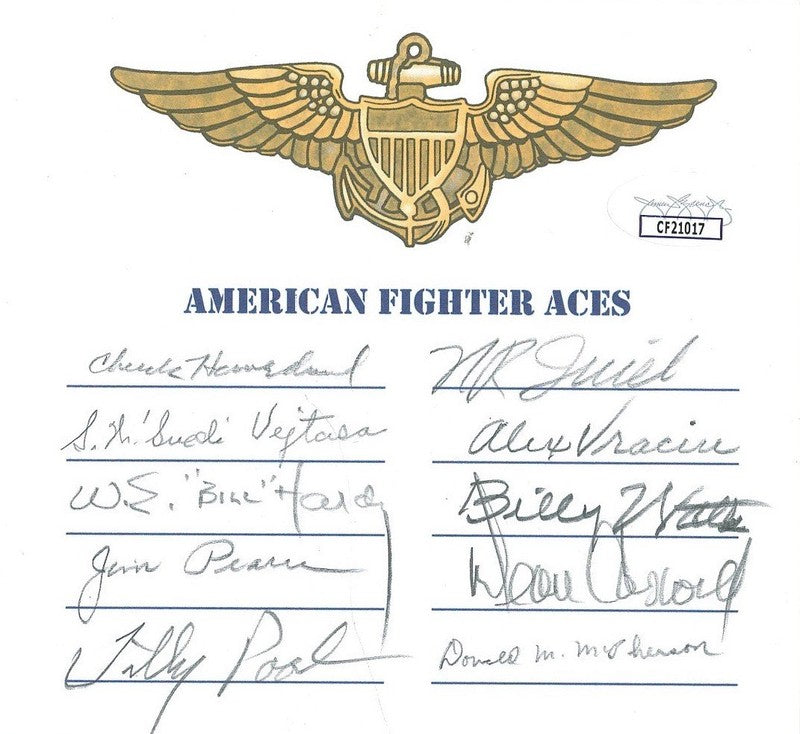 CF21017
AMERICAN FIGHTER ACES
Chuck Haverland
S.W. "Swede" Vejtasa
W.E. "BILL" Hardy
Jim Pearce
Tilly Pool
Alex Vraciu
Billy Watts
Dean Caswell
Donald M. McPherson